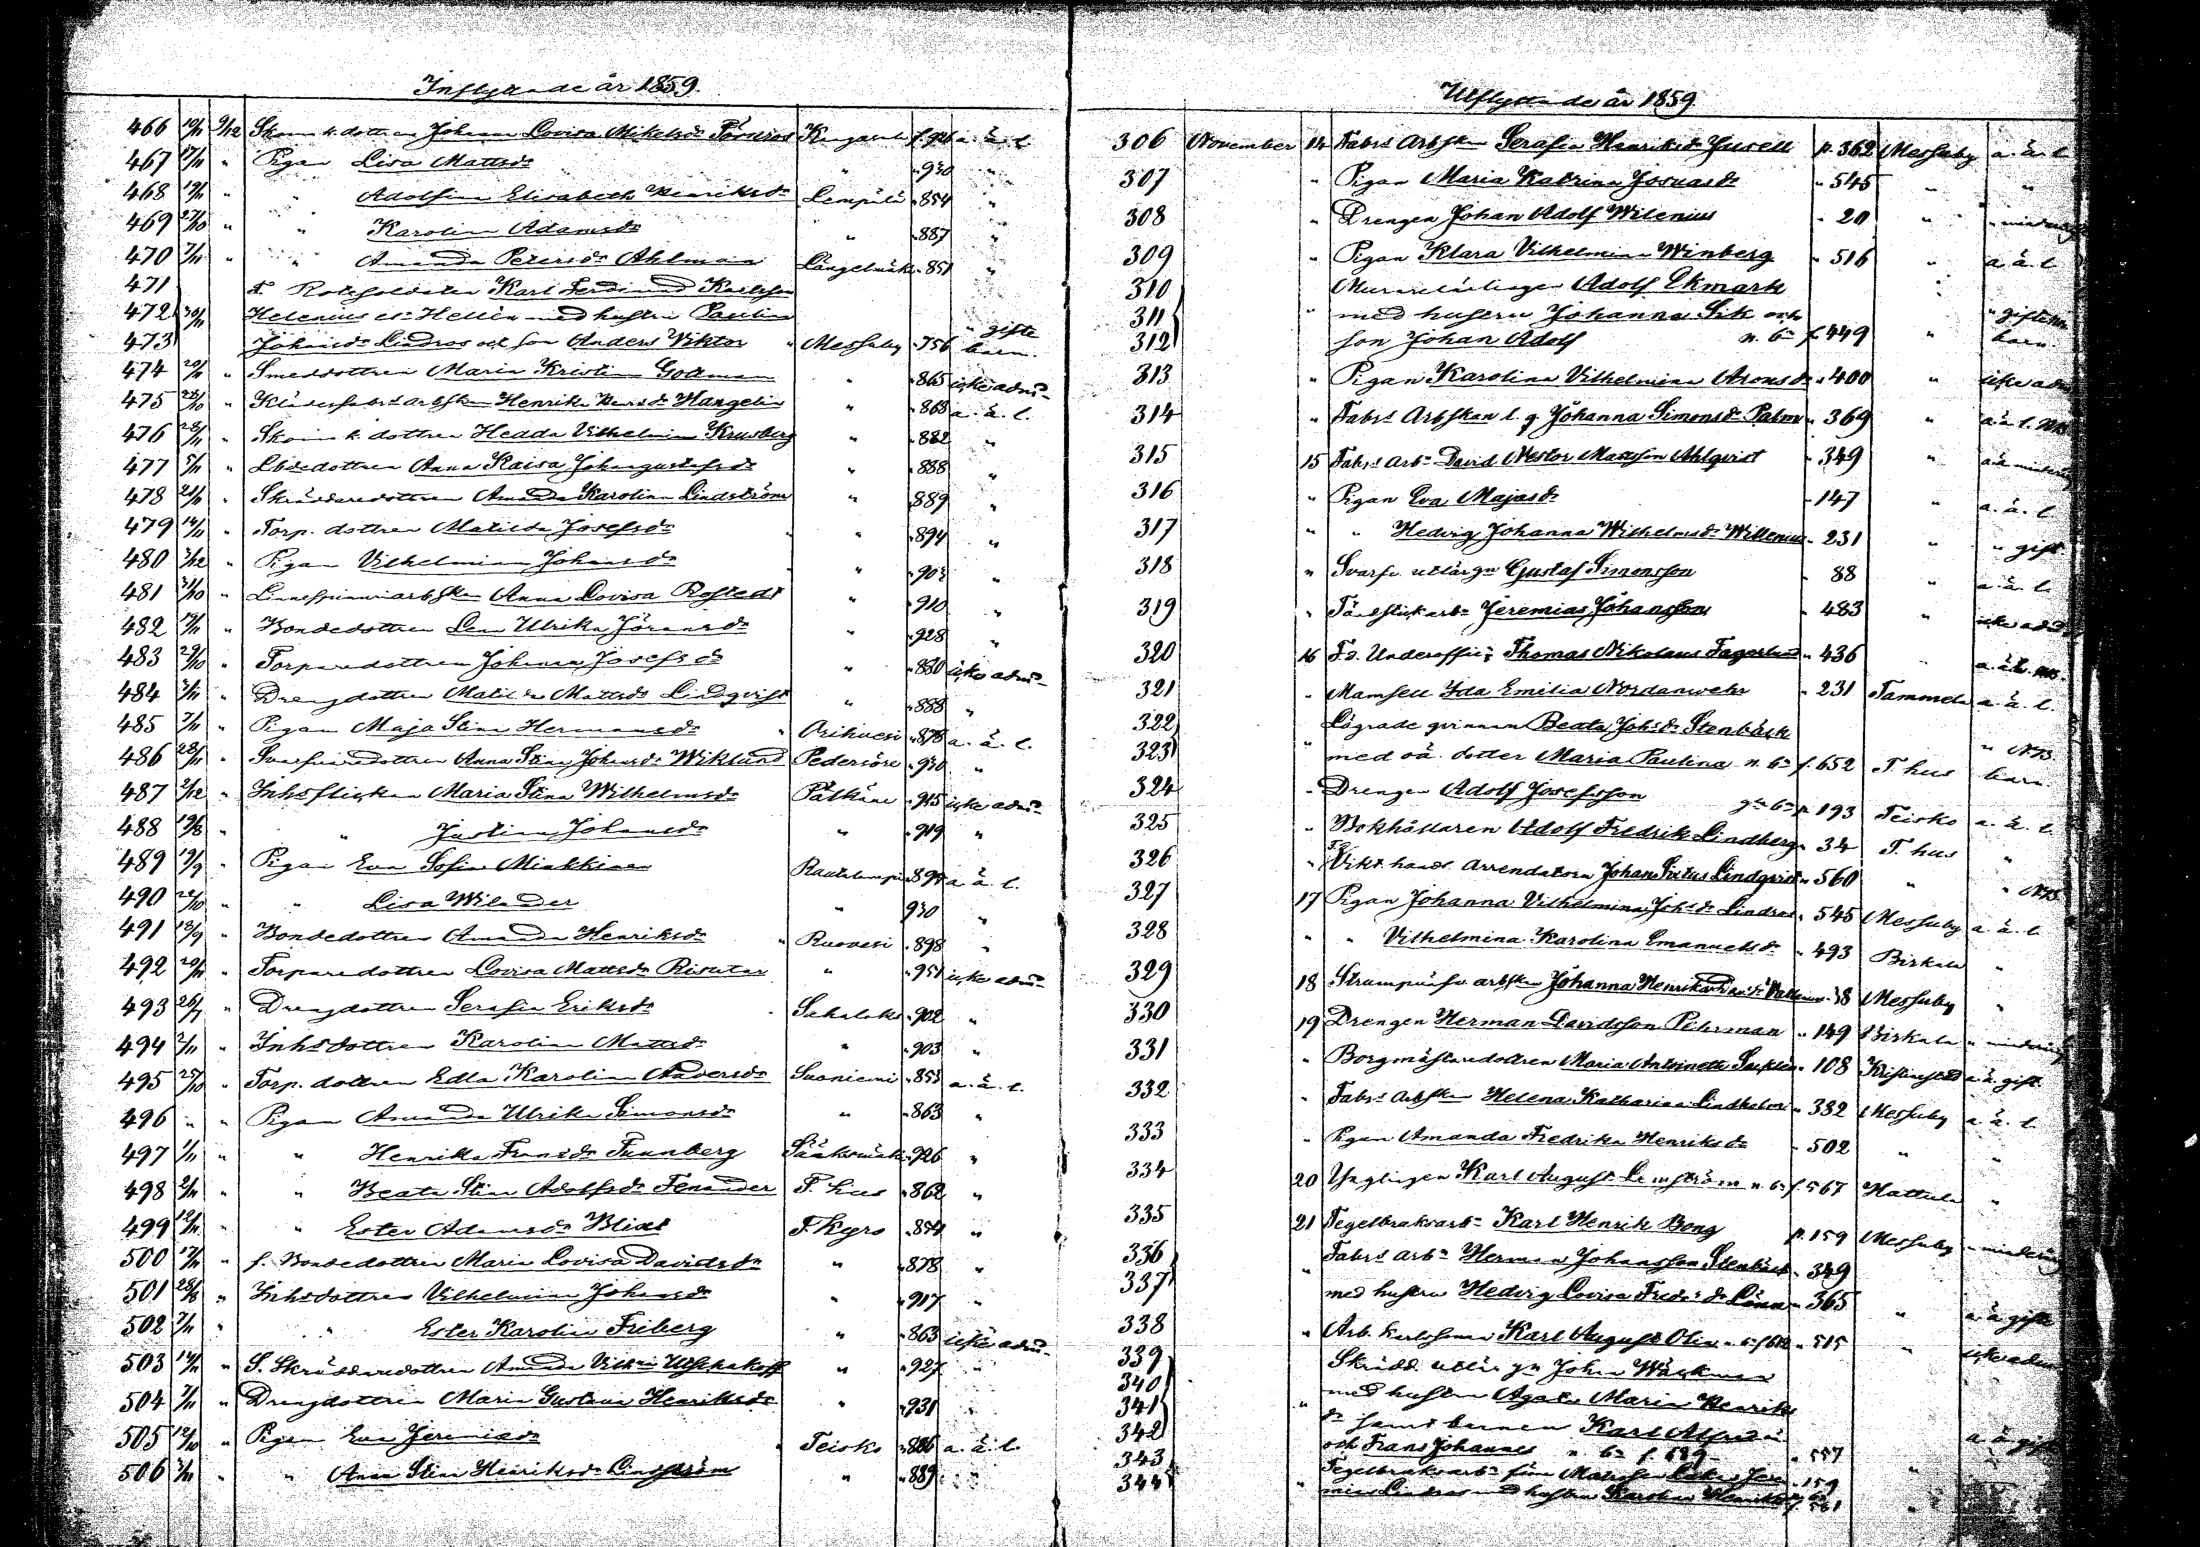 Inflyttade år 1859.
466 10/11 9/12 Skom k. dottren Johanna Lovisa Mikelsdr Törnros Kangasala f. 926 a. ä. l.
467 17/11 " Pigan Lisa Mattsdr " " 930 "
468 19/11 " " Adolfina Elisabeth Henriksdr Lempälä " 854 "
469 27/10 " " Karolina Adamsdr " " 887 "
470 7/11 " " Amanda Petersdr Ahlman Längelmäki " 851 "
471 F. Rotesoldaten Karl Ferdinand Karlsson
472 30/11 Helenius el. Hellén med hustru Paulina " gifte
473 Johansdr Lindros och son Anders Viktor " Messuby " 756 barn.
474 20/11 " Smeddottren Maria Kristina Gottman " " 865 icke adm.
475 28/10 " Klädesfabrs arbskan Henrika Henrsdr Hangelin " " 868 a. ä. l.
476 28/11 " Skom k. dottren Hedda Vilhelmina Krusberg " " 882 "
477 5/11 " Lösedottren Anna Kaisa Johangustafsdr " " 888 "
478 21/11 " Skräddaredottren Amanda Karolina Lindström " " 889 "
479 14/11 " Torp. dottren Matilda Josefsdr " " 894 "
480 3/12 " Pigan Vilhelmina Johansdr " " 903 "
481 31/10 " Linnespinneriarbskan Anna Lovisa Rostedt " " 910 "
482 17/11 " Bondedottren Lena Ulrika Göransdr " " 928 "
483 29/10 " Torparedottren Johanna Josefsdr " " 850 icke adm.
484 3/11 " Drengdottren Matilda Mattsdr Lindqvist " " 888 "
485 7/11 " Pigan Maja Stina Hermansdr " Orihvesi " 878 a. ä. l.
486 28/11 " Svarfvaredottren Anna Stina Johansdr Wiklund Pedersöre " 930 "
487 2/12 " Inhs flickan Maria Stina Wilhelmsdr Pälkäne " 915 icke adm.
488 19/8 " " Justina Johansdr " " 919 "
489 19/9 " Pigan Eva Sofia Miakkinen Rautalampi " 894 a. ä. l.
490 24/10 " " Lisa Wilander " 930 "
491 13/9 " Bondedottren Amanda Henriksdr " Ruovesi " 898 "
492 20/11 " Torparedottren Lovisa Mattsdr " " 951 icke adm.
493 26/7 " Drengdottren Serafia Eriksdr " Sahalaks " 902 "
494 2/11 " Inhsdottren Karolina Mattsdr " " 903 "
495 25/10 " Torp. dottren Edla Karolina Andersdr Suoniemi " 853 a. ä. l.
496 " " Pigan Amanda Ulrika Simonsdr " " 863 "
497 1/11 " " Henrika Fransdr Tunnberg Sääksmäki " 926 "
498 2/11 " " Beata Stina Adolfsdr Fenander T. hus " 862 "
499 12/11 " " Ester Adamsdr Blixt T. kyro " 854 "
500 17/11 " f. Bondedottren Maria Lovisa Davidsdr " " 878 "
501 28/8 " Inhsdottren Vilhelmina Johansdr " " 917 "
502 7/11 " " Ester Karolina Friberg " " 863 icke adm.
503 14/11 " S. Skräddaredottren Amanda Vilhmina " " 927 "
504 7/11 " Drengdottren Maria Gustava Henriksdr " " 931 "
505 12/10 " Pigan Eva Jeremiasdr " Teisko " 886 a. ä. l.
506 3/11 " " Anna Stina Henriksdr Lindström " " 889 "
Utflyttade år 1859
306 November 14 Fabrs Arbskan Serafia Henriksdr Jusell p. 362 Messuby a. ä. l.
307 " Pigan Maria Katrina Josuasdr " 545 " "
308 " Drengen Johan Adolf Wilenius " 20 " " minderårig
309 " Pigan Klara Vilhelmina Winberg " 516 " a. ä. l.
310 Murarelärlingen Adolf Ekmark
311 " med hustru Johanna Sik och " gifte
312 son Johan Adolf n. bn f. 449 " barn.
313 " Pigan Karolina Vilhelmina Aronsdr " 400 " icke adm
314 " Fabrs Arbskan l. q Johanna Simonsdr Palm " 369 " a. ä. l. NB
315 15 Fabrs Arbn David Nestor Mattsson Ahlqvist " 349 " a. ä. minderårig
316 " Pigan Eva Majasdr " 147 " a. ä. l.
317 " " Hedvig Johanna Wilhelmsdr Willenius " 231 " " gift
318 " Svarfv. utlärgn Gustaf Simonsson " 88 " a. ä. l.
319 " Tändsticksarbn Jeremias Johansson " 483 " icke adm
320 16 F.d. Underofficr Thomas Nikolaus Fagerlund " 436 " a. ä. l.
321 " Mamsell Ida Emilia Nordanwehr " 231 Tammela a. ä. l.
322 Lägrade qvinnan Beata Johsdr Stenbäck " NB
323 " med oä. dotter Maria Paulina n. bn f. 652 T. hus barn.
324 " Drengen Adolf Josefsson gn bn p 193 Teisko a. ä. l.
325 " Bokhållaren Adolf Fredrik Lindberg " 34 T. hus "
326 " Fd Vikt. hands Arrendatorn Johan Sixtus Lindqvist " 560 " " NB.
327 17 Pigan Johanna Vilhelmina Johsdr Lindros " 545 Messuby a. ä. l.
328 " " Vilhelmina Karolina Emanuelsdr " 493 Birkala "
329 18 Strumpväfv. arbskan Johanna Henrika " 38 Messuby "
330 19 Drengen Herman Davidsson Peterman " 149 Birkala " minderårig
331 " Borgmästaredottren Maria Antoinette " 108 Kristinestad a. ä. gift.
332 " Fabrs Arbskan Helena Katharina Lindholm " 382 Messuby a. ä. l.
333 " Pigan Amanda Fredrika Henriksdr " 502 " "
334 20 Ynglingen Karl August Lemström n. bn f. 567 Hattula "
335 21 Tegelbruksarbn Karl Henrik Bong p. 159 Messuby " minderårig
336 Fabrs Arbn Herman Johansson Stenbäck " 349
337 " med hustru Hedvig Lovisa Fredrsdr Lönn " 365 " a. ä. gifte
338 " Arb. karlsonen Karl August Olin n. bn f 612 " 515 " icke adm
339 Skrädd. utlärgn Johan Wäckman
340 med hustru Agata Maria Henriks
341 " dr samt barnen Karl Alfred
342 och Frans Johannes n. bn f. 689 " 557 " a. ä. gifte
343 Tegelbruksarbn " 159
344 " Lindros med hustru Karolina Henriksdr f. 561 "